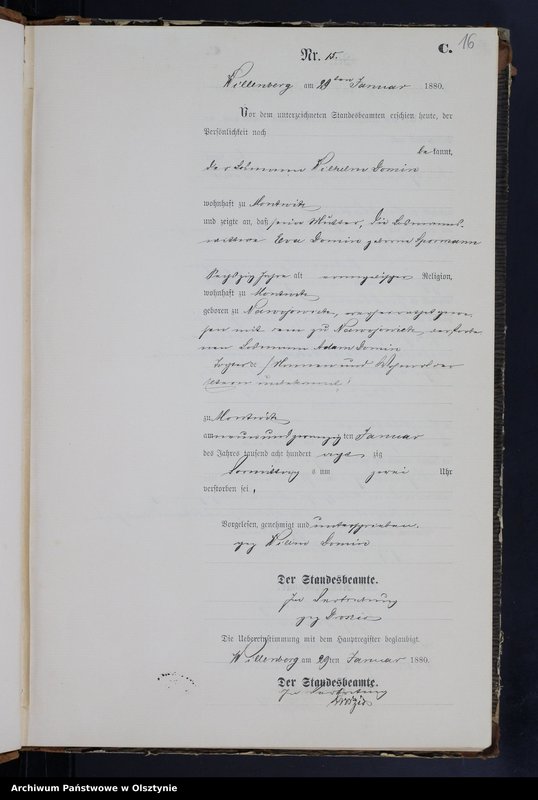 16
C.
Nr. 15.
Willenberg am 29ten Januar 1880.
Vor dem unterzeichneten Standesbeamten erschien heute, der
Persönlichkeit nach
bekannt,
der Losmann Wilhelm Domin
wohnhaft zu Montwitz
und zeigte an, daß seine Mutter, die Losmanns-
wittwe Eva Domin geborne
Sechszig Jahre alt evangelischer Religion,
wohnhaft zu Montwitz
geboren zu verheirathet gewe-
sen mit dem zu verstorbe-
nen Losmann Adam Domin
Tochter der /Namen und Wohnort der
Eltern unbekannt/
zu Montwitz
am neunundzwanzigten Januar
des Jahres tausend acht hundert achtzig
Vormittags um zwei Uhr
verstorben sei.
Vorgelesen, genehmigt und unterschrieben.
gez Wilhelm Domin
Der Standesbeamte.
In Vertretung
gez
Die Uebereinstimmung mit dem Hauptregister beglaubigt.
Willenberg am 29ten Januar 1880.
Der Standesbeamte.
In Vertretung
Archiwum Państwowe w Olsztynie